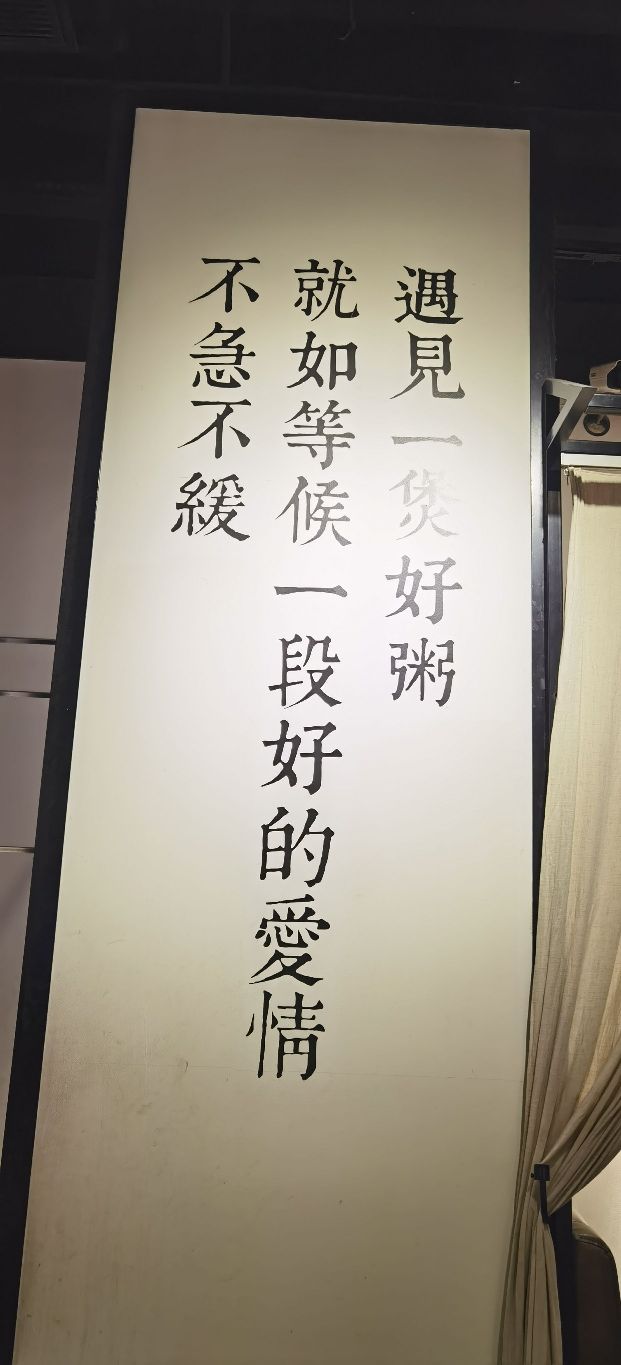 遇見一煲好粥
就如等候一段好的愛情
不急不緩